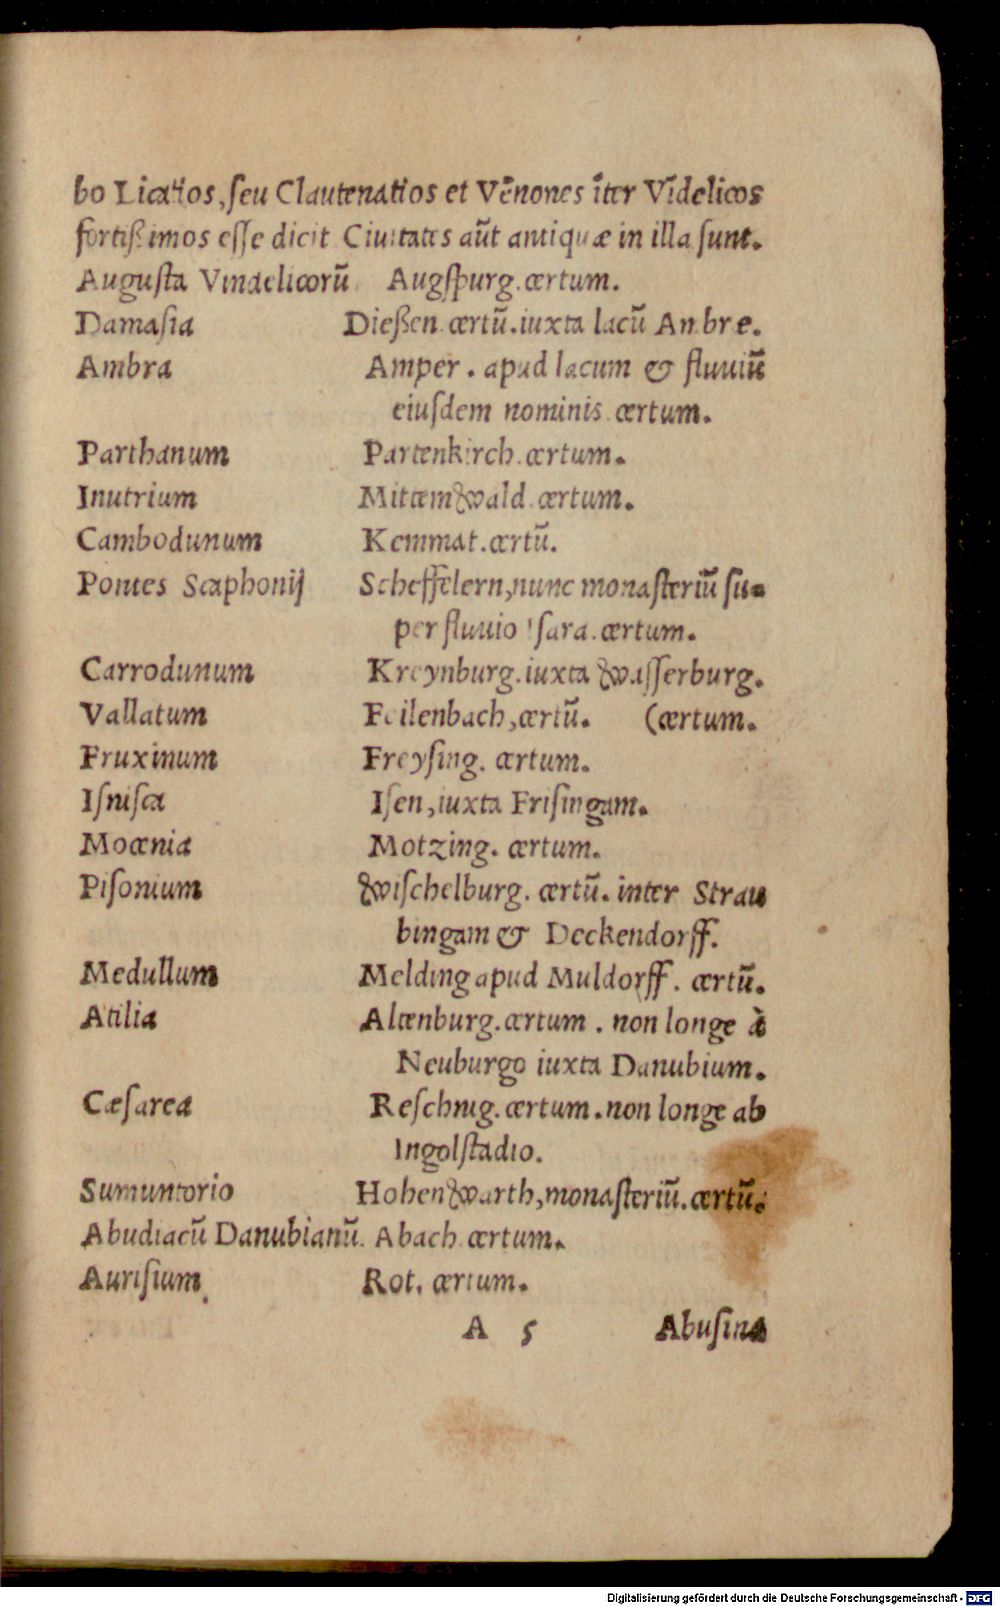 bo Licatios, ſeu Clautenatios et Vēnones īter Vīdelicos
fortiſsimos eſſe dicit Ciuitates aūt antiquæ in illa ſunt.
Auguſta Vindelicorū Augſpurg. certum.
Damaſia Dießen certū. iuxta lacū Ambre.
Ambra Amper. apud lacum & fluuiū
eiuſdem nominis certum.
Parthanum Partenkirch. certum.
Inutrium Mittemwald. certum.
Cambodunum Kemmat. certū.
Pontes Scaphonij Scheffelern, nunc monaſteriū ſu-
per fluuio Iſara. certum.
Carrodunum Kreynburg. iuxta waſſerburg.
Vallatum Feilenbach, certū. (certum.
Fruxinum Freyſing. certum.
Iſniſca Iſen, iuxta Friſingam.
Mocenia Motzing. certum.
Piſonium wiſchelburg. certū. inter Strau
bingam & Deckendorff.
Medullum Melding apud Muldorff. certū.
Atilia Altenburg. certum. non longe à
Neuburgo iuxta Danubium.
Cæſarea Reſchnig. certum. non longe ab
Ingolſtadio.
Sumuntorio Hohenwarth, monaſteriū. certū.
Abudiacū Danubianū. Abach certum.
Auriſium Rot. certum.
A 5 Abuſina
Digitalisierung gefördert durch die Deutsche Forschungsgemeinschaft - DFG